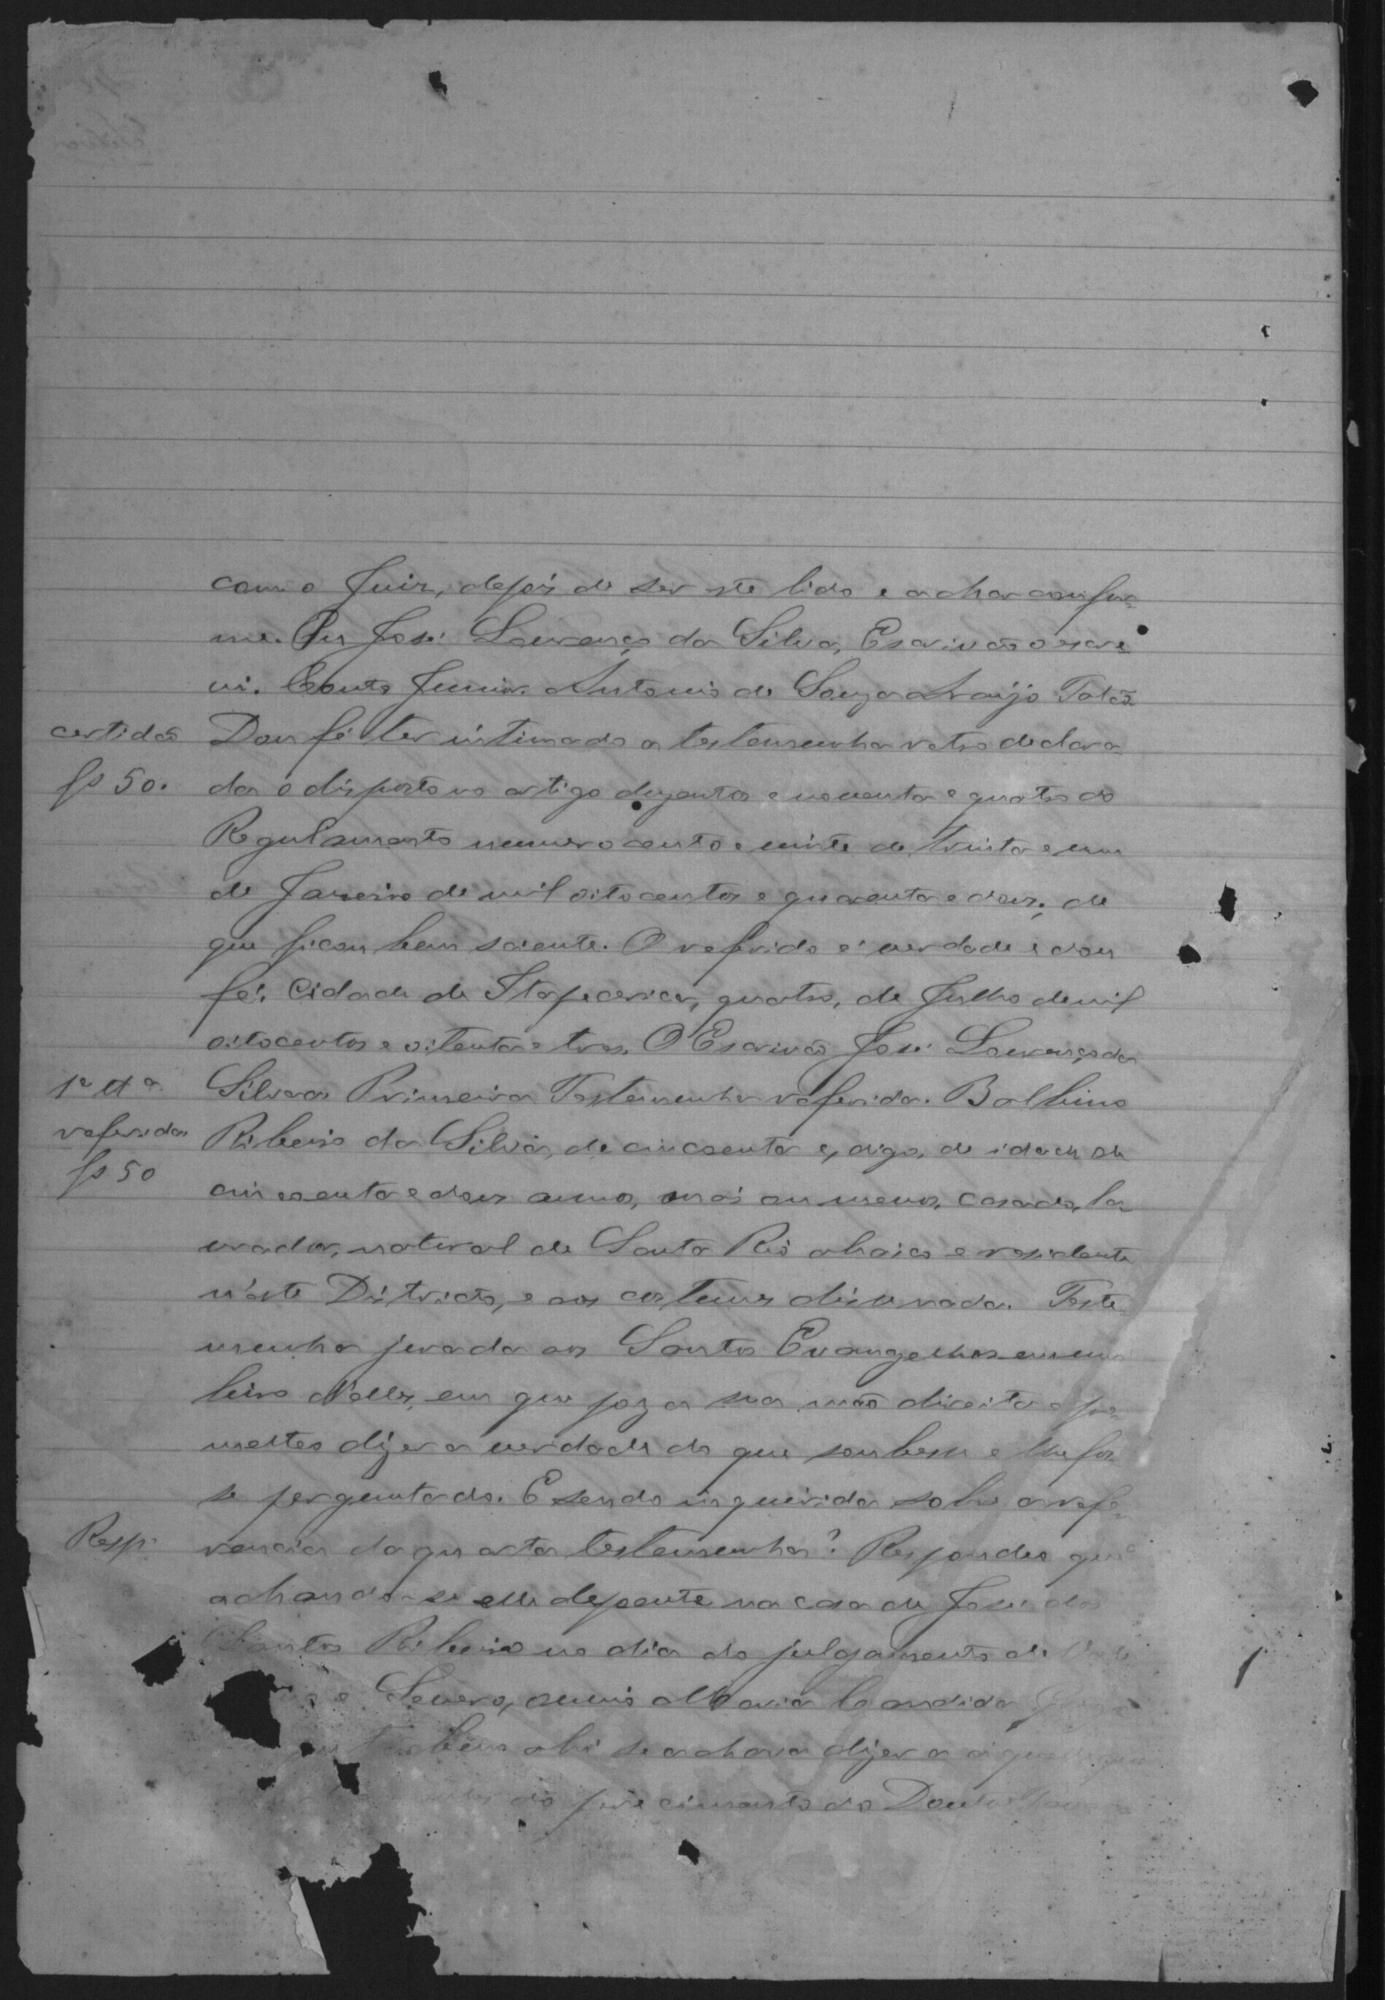 com o Juiz, depois de ser este lido e achar confor-
me. Eu José Lourenço da Silva, Escrivão o escre-
vi. Couto Junior. Antonio de Souza Araujo Falcão
certidão Dou fé ter intimado a testemunha retro declara-
fs 50. da o disposto no artigo duzentos e noventa e quatro do
Regulamento numero cento e vinte de trinta e um
de Janeiro de mil oitocentos e quarenta e dous, de
que ficou bem sciente. O referido é verdade e dou
fé. Cidade de Itapecerica, quatro, de Julho de mil
oitocentos e oitenta e tres. O Escrivão José Lourenço da
1ª tª Silva. Primeira Testemunha referida. Balbino
referida Ribeiro da Silva, de cincoenta e, digo, de idade de
fs 50 cincoenta e dous annos, mais ou menos, casado, la
vrador, natural de Santa Rio abaixo e residente
n'este Districto, e aos costumes disse nada. Teste
munha jurada aos Santos Evangelhos em um
livro d'elles, em que poz a sua mão direita e pro
metteo dizer a verdade do que soubesse e lhe fos
se perguntado. E sendo inquerida sobre a refe
Resp. rencia da quarta testemunha? Respondeo que
achando-se elle depoente na casa de José dos
Santos Ribeiro no dia do julgamento de
e Severo, ouvio a Maria Candida
tambem ahi se achava dizer a aquelle que
do fallecimento do Doutor